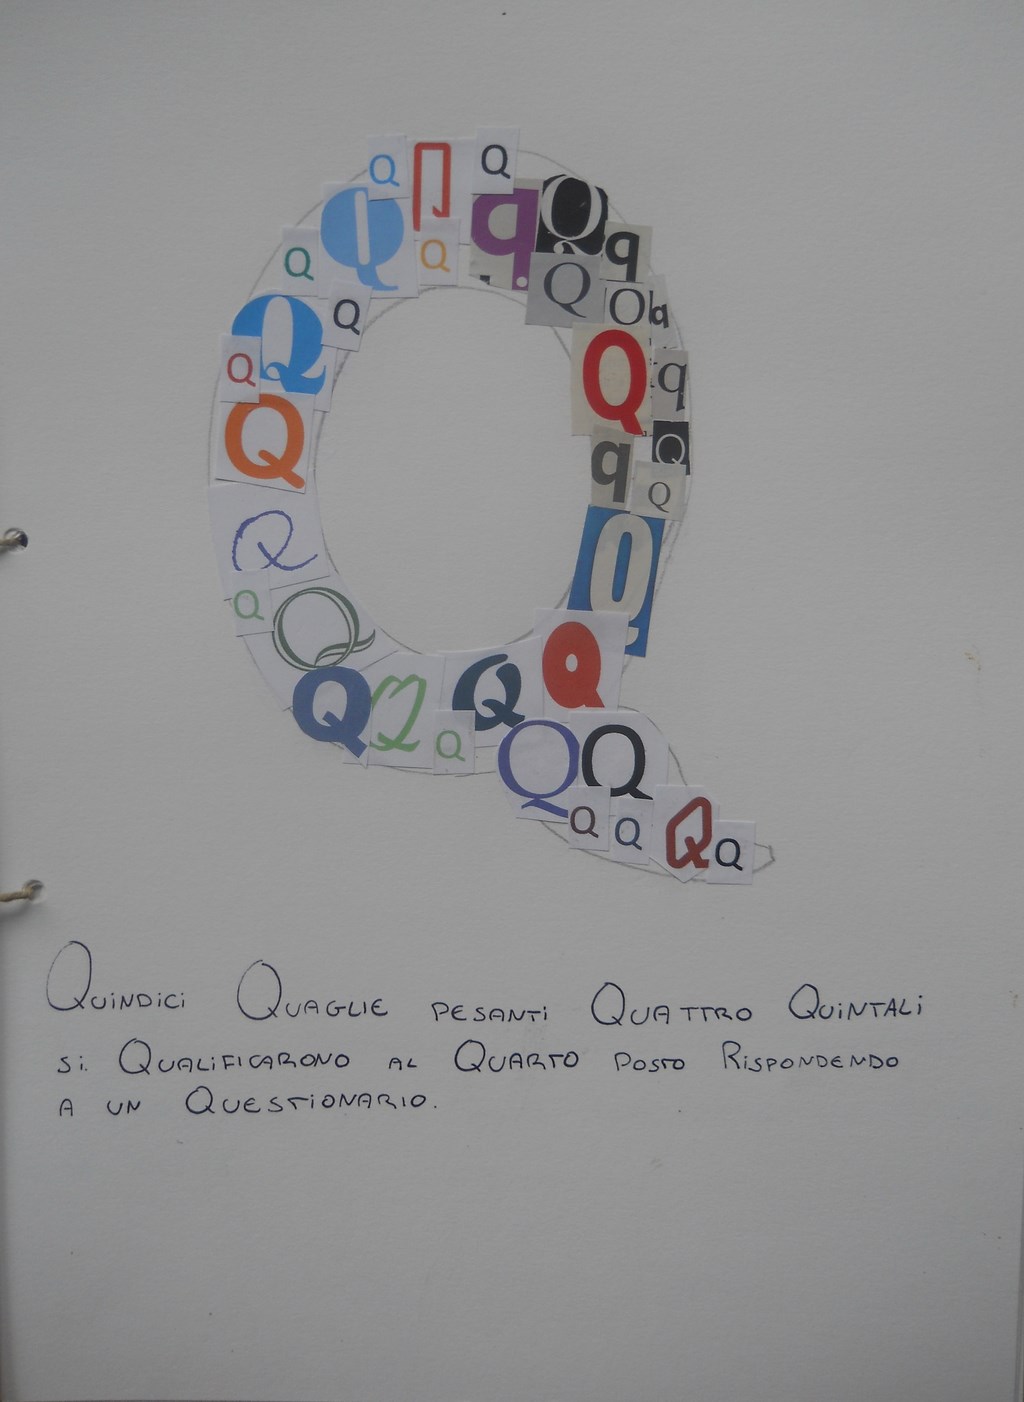 Q Π Q
Q q Q q
Q Q Q Q
Q Q
Q Q q
Q q Q
Q q Q
Q Q
Q Q
Q Q Q Q Q
Q Q
Q Q Q Q
QUINDICI QUAGLIE PESANTI QUATTRO QUINTALI
SI QUALIFICARONO AL QUARTO POSTO RISPONDENDO
A UN QUESTIONARIO.